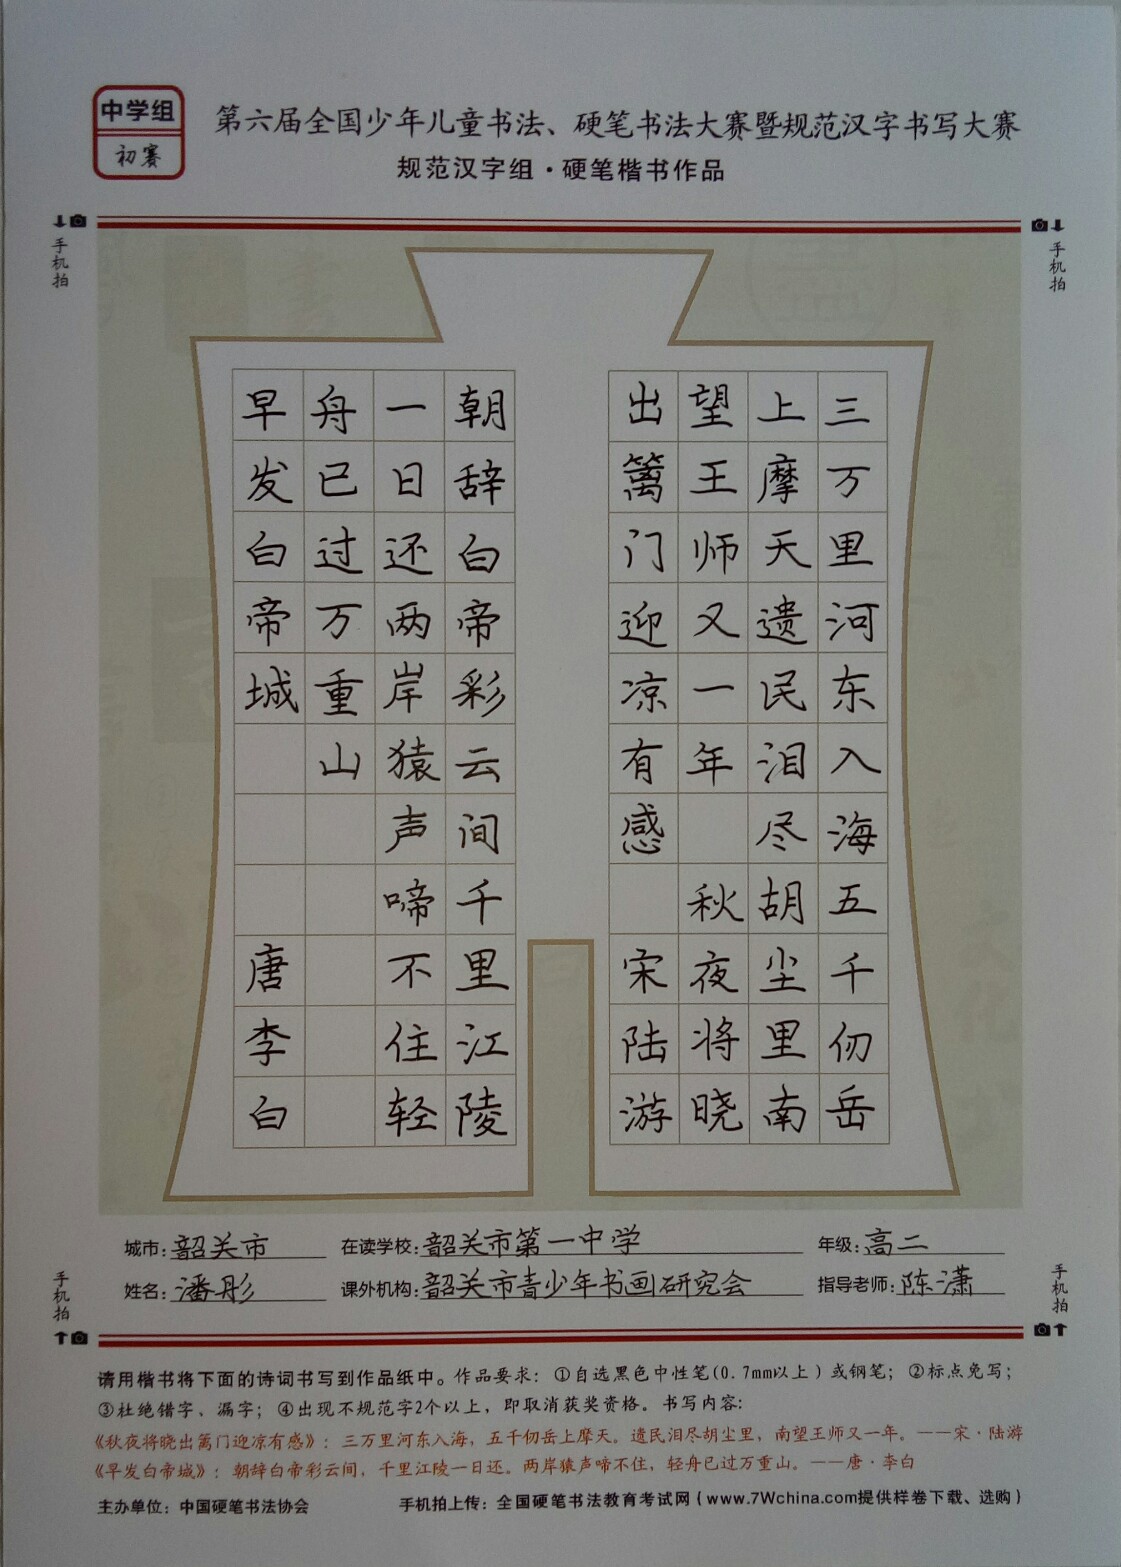 中学组
初赛
第六届全国少年儿童书法、硬笔书法大赛暨规范汉字书写大赛
规范汉字组·硬笔楷书作品
手机拍
手机拍
三万里河东入海五千仞岳
上摩天遗民泪尽胡尘里南
望王师又一年 秋夜将晓
出篱门迎凉有感 宋陆游
朝辞白帝彩云间千里江陵
一日还两岸猿声啼不住轻
舟已过万重山
早发白帝城 唐李白
城市:韶关市 在读学校:韶关市第一中学 年级:高二
姓名:潘彤 课外机构:韶关市青少年书画研究会 指导老师:陈潇
手机拍
手机拍
请用楷书将下面的诗词书写到作品纸中。作品要求：①自选黑色中性笔(0.7mm以上)或钢笔；②标点免写；
③杜绝错字、漏字；④出现不规范字2个以上，即取消获奖资格。书写内容：
《秋夜将晓出篱门迎凉有感》：三万里河东入海，五千仞岳上摩天。遗民泪尽胡尘里，南望王师又一年。——宋·陆游
《早发白帝城》：朝辞白帝彩云间，千里江陵一日还。两岸猿声啼不住，轻舟已过万重山。——唐·李白
主办单位：中国硬笔书法协会 手机拍上传：全国硬笔书法教育考试网(www.7Wchina.com提供样卷下载、选购)